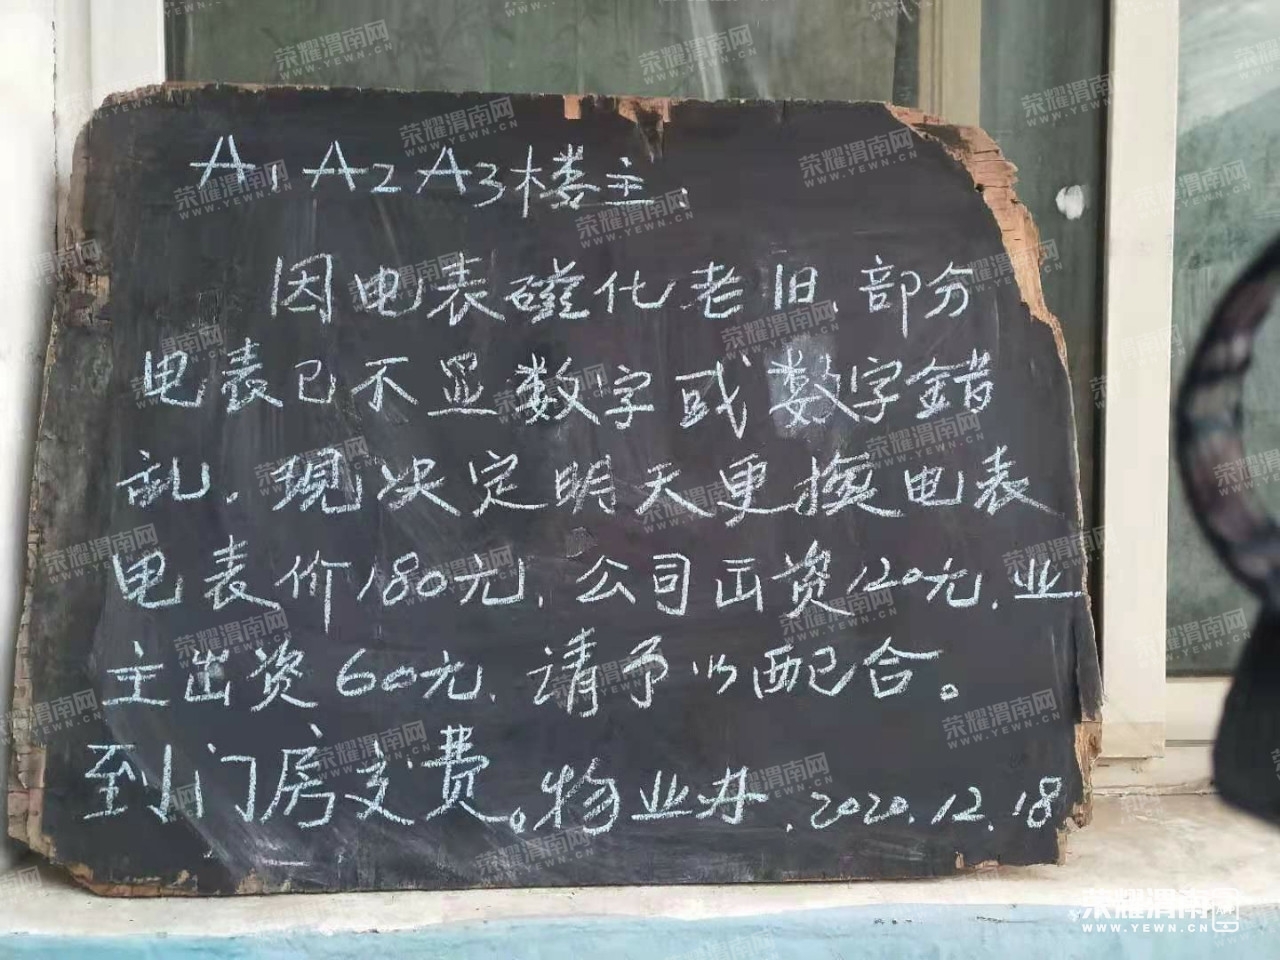 A1 A2 A3楼主.
因电表磁化老旧.部分
电表已不显数字或数字错
乱.现决定明天更换电表
电表价180元.公司出资120元.业
主出资60元.请予以配合。
到门房交费。物业办.2020.12.18
荣耀渭南网
WWW.YEWN.CN